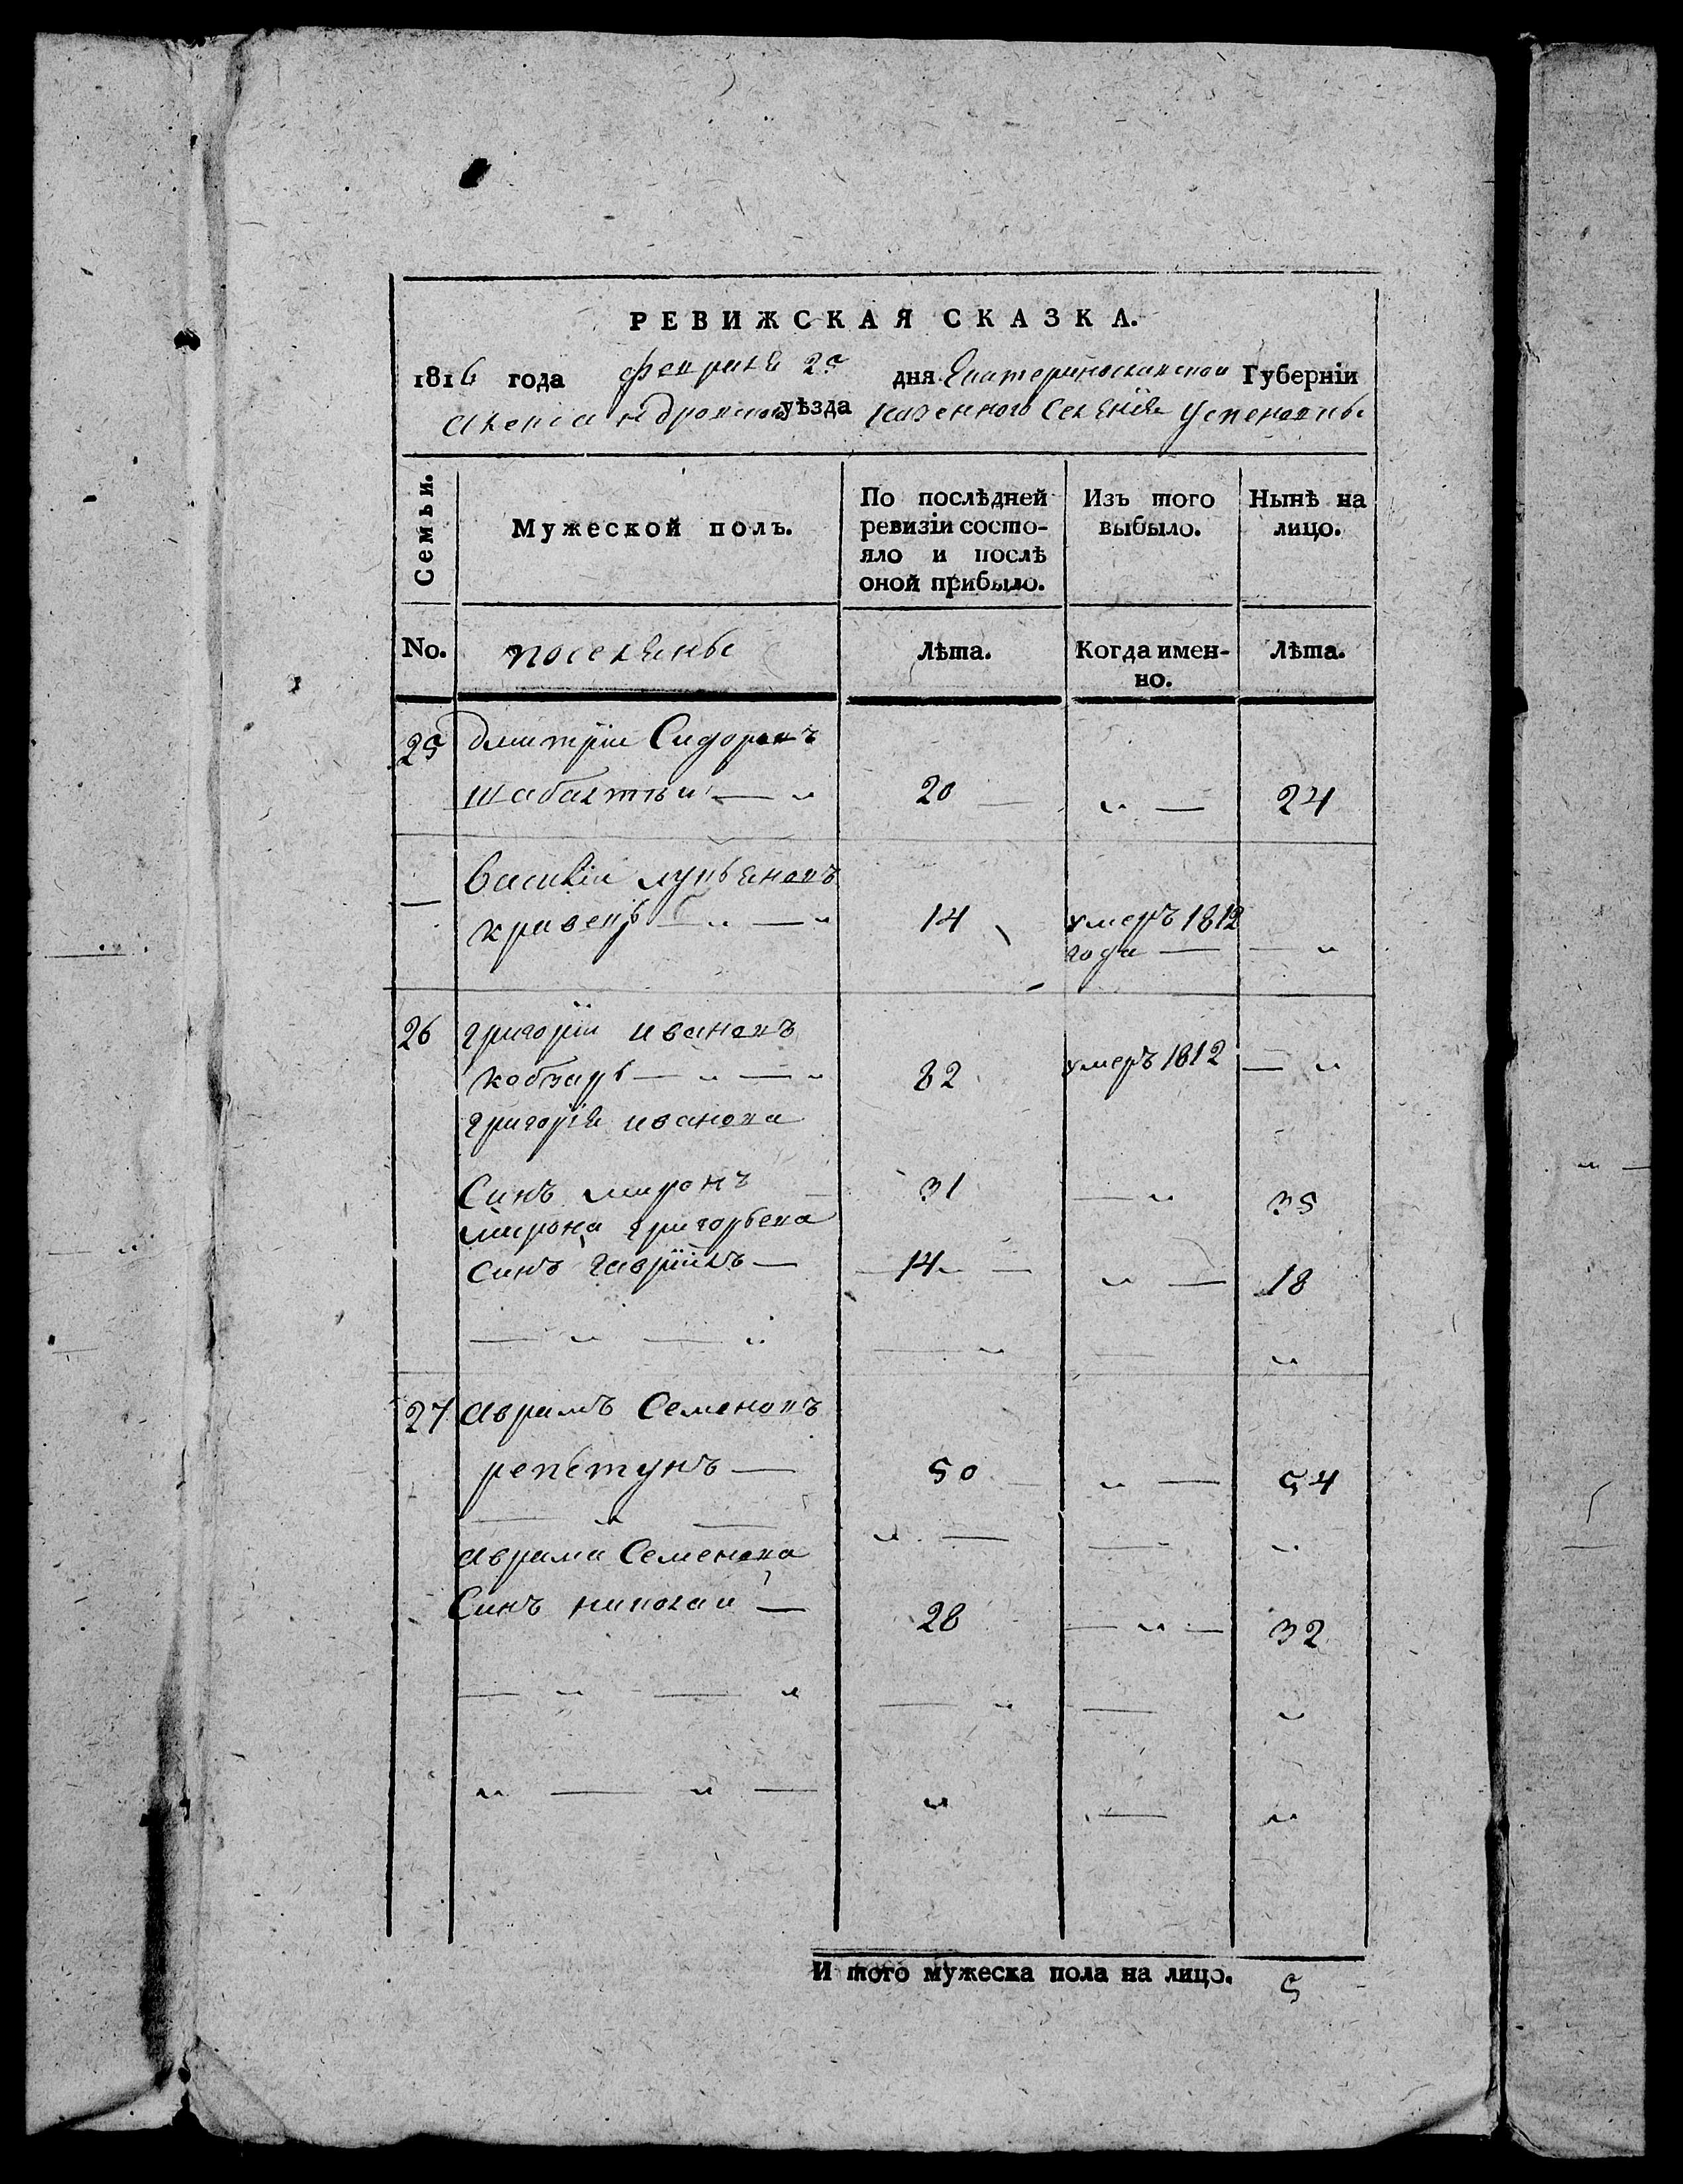 РЕВИЖСКАЯ СКАЗКА.
1816 года февраля 2го дня Екатеринославской Губерніи
Александровского уѣзда казенного Селенія Успеновкы
Семьи. Мужеской полъ. По послѣдней ревизіи состояло и послѣ оной прибыло. Изъ того выбыло. Нынѣ на лицо.
No. поселяны Лѣта. Когда именно. Лѣта.
25 Дмитріи Сидоровъ
— „ 20 — „ — 24
Василіи лукьяновъ
кривецъ — „ — „ 14 умеръ 1812
года — — „
26 григоріи ивановъ
кобзарь — „ — „ 82 умеръ 1812 — „
григорія иванова
Синъ миронъ 31 — „ 35
мирона григорьева
синъ гаврыилъ — 14 „ — 18
— „ — „ — „ — „
27 аврамъ Семеновъ
репетунъ — 50 „ — 54
— „ — „ — — „
аврама Семенова
Синъ николаи — 28 — „ — 32
— „ — „ — „ — „
„ — „ — „ — „
И того мужеска пола на лицо. 5